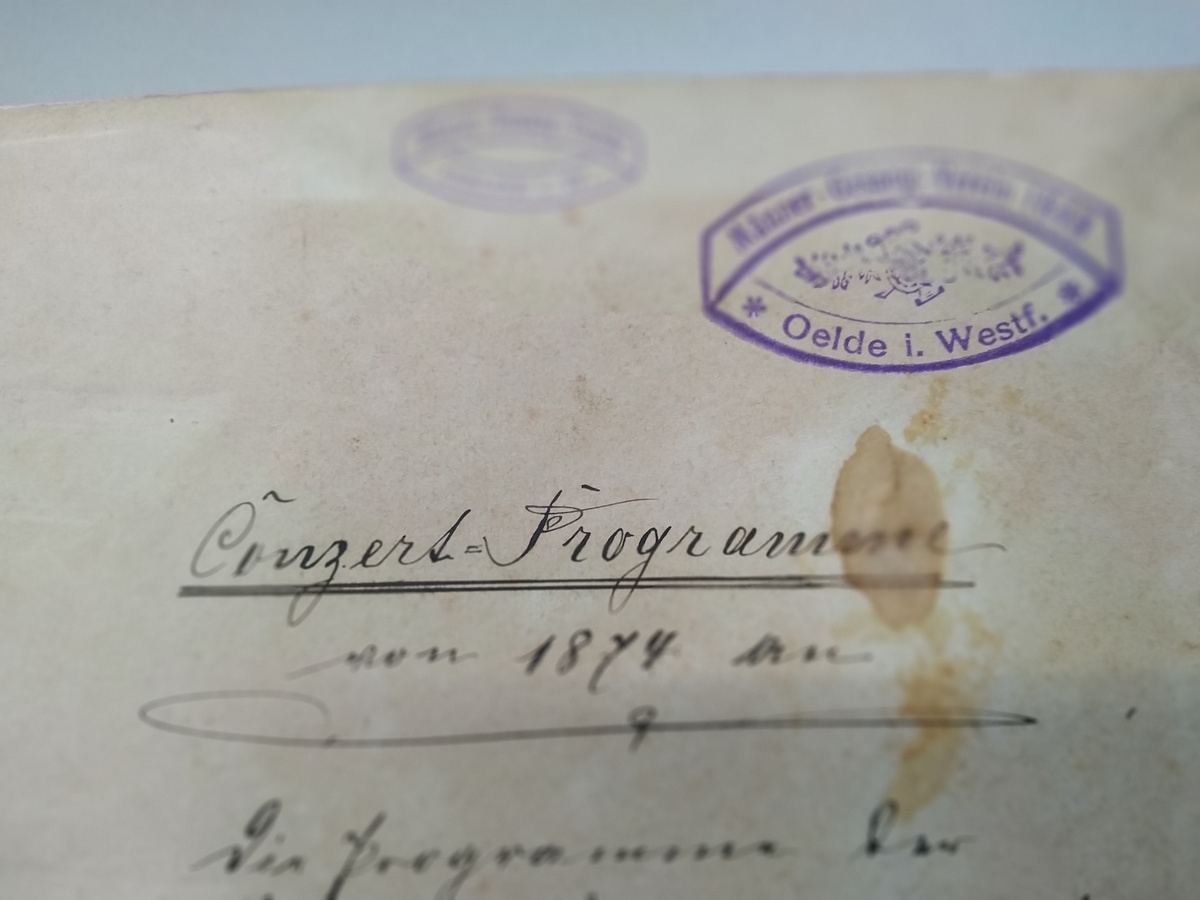 Männer-Gesang-Verein 1848
Oelde i. Westf.
Conzert=Programme
von 1874 an
Die Programme der